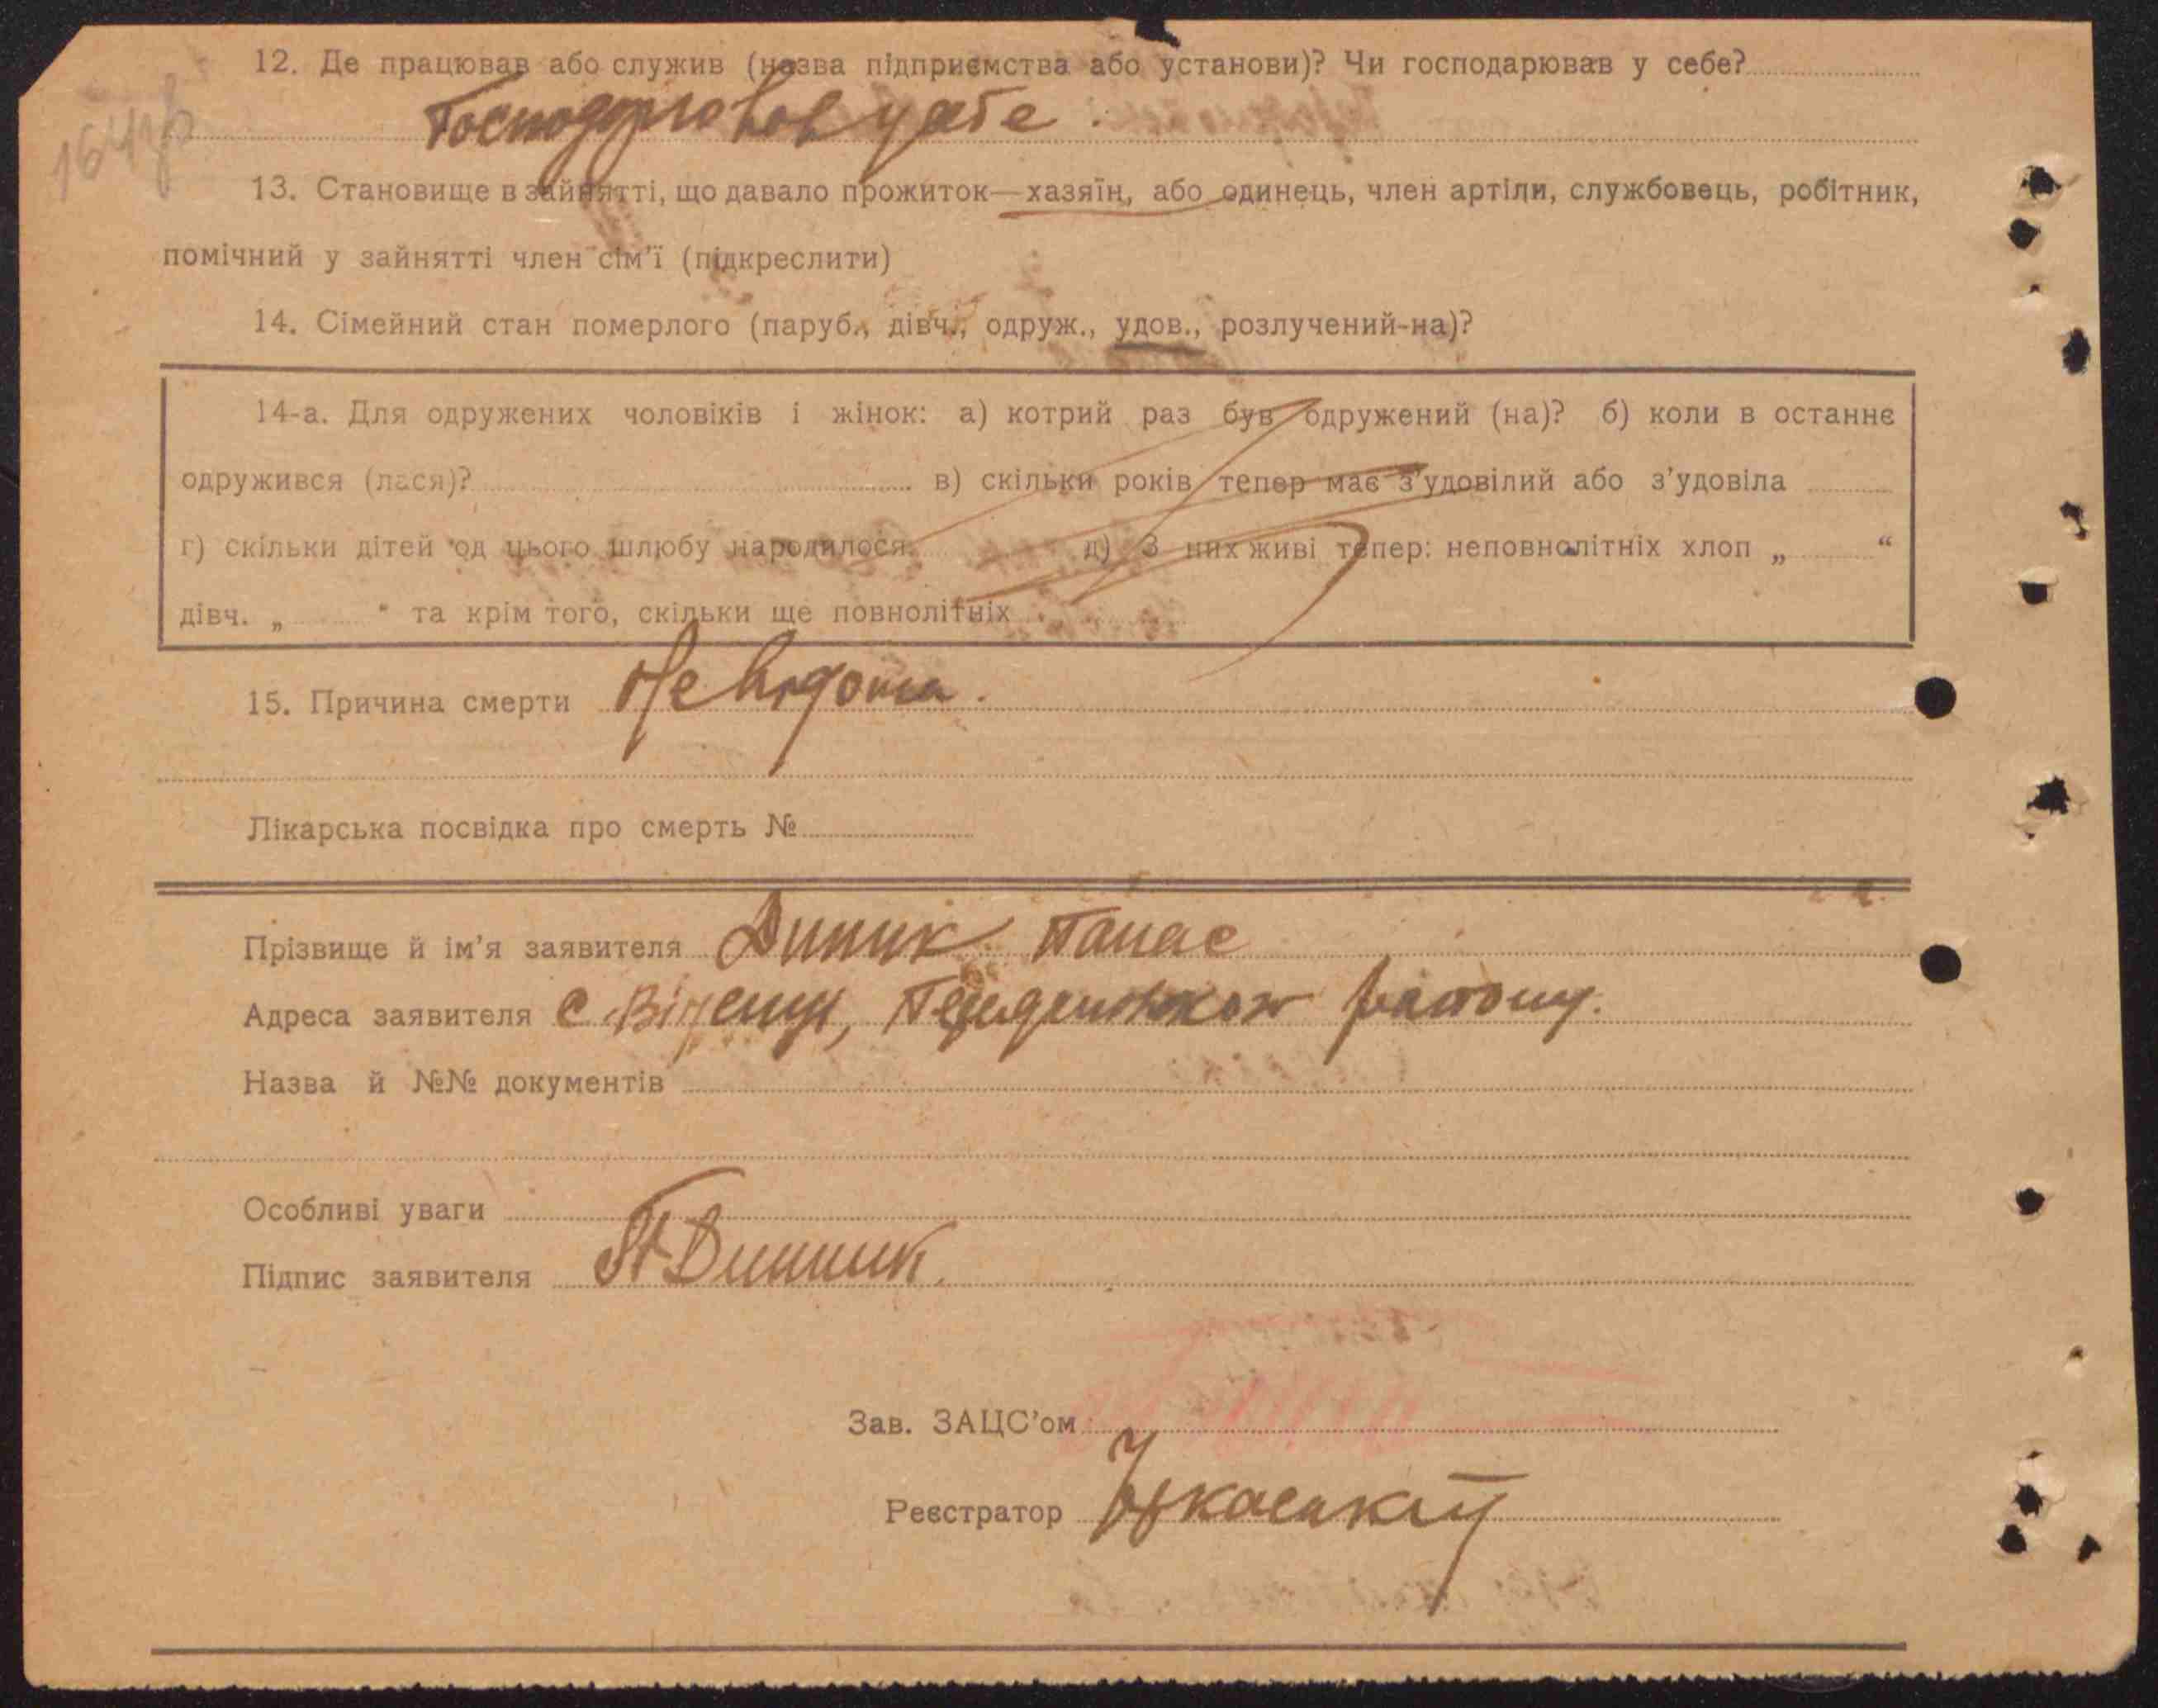 12. Де працював або служив (назва підприємства або установи)? Чи господарював у себе?
164 зв
Господарював у себе.
13. Становище в зайнятті, що давало прожиток—хазяїн, або одинець, член артіли, службовець, робітник,
помічний у зайнятті член сім'ї (підкреслити)
14. Сімейний стан померлого (паруб., дівч., одруж., удов., розлучений-на)?
14-а. Для одружених чоловіків і жінок: а) котрий раз був одружений (на)? б) коли в останнє
одружився (лася)? в) скільки років тепер має з'удовілий або з'удовіла
г) скільки дітей од цього шлюбу народилося д) З них живі тепер: неповнолітніх хлоп „ “
дівч. „ “ та крім того, скільки ще повнолітніх
15. Причина смерти Не відома.
Лікарська посвідка про смерть №
Прізвище й ім'я заявителя Диник Панас
Адреса заявителя с. району.
Назва й №№ документів
Особливі уваги
Підпис заявителя П Динник.
Зав. ЗАЦС'ом
Реєстратор